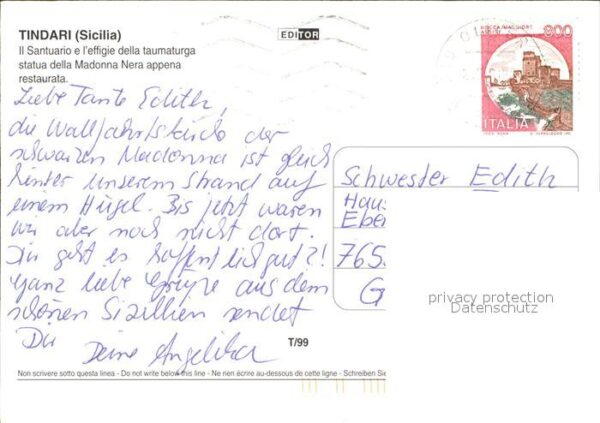 TINDARI (Sicilia)
Il Santuario e l'effigie della taumaturga
statua della Madonna Nera appena
restaurata.
EDITOR
ROCCA MAGGIORE
800
ITALIA
Liebe Tante Edith,
die Wallfahrtskirche der
schwarzen Madonna ist gleich
hinter unserem Strand auf
einem Hügel. Bis jetzt waren
wir aber noch nicht dort.
Dir geht es hoffentlich gut?!
Ganz liebe Grüße aus dem
schönen Sizilien sendet
Dir Deine Angelika
Schwester Edith
Haus
Eber
765
G
privacy protection
Datenschutz
T/99
Non scrivere sotto questa linea - Do not write below this line - Ne rien écrire au-dessous de cette ligne - Schreiben Sie